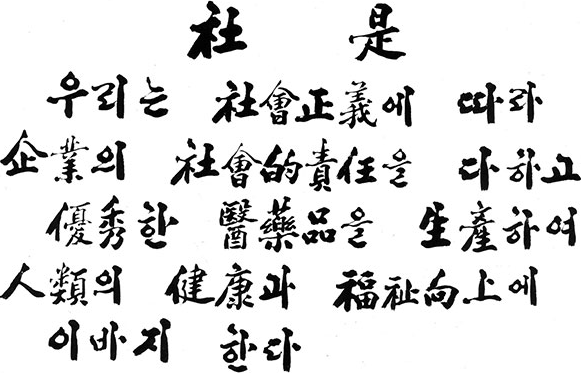 社 是
우리는 社會正義에 따라
企業의 社會的責任을 다하고
優秀한 醫藥品을 生産하여
人類의 健康과 福祉向上에
이바지 한다